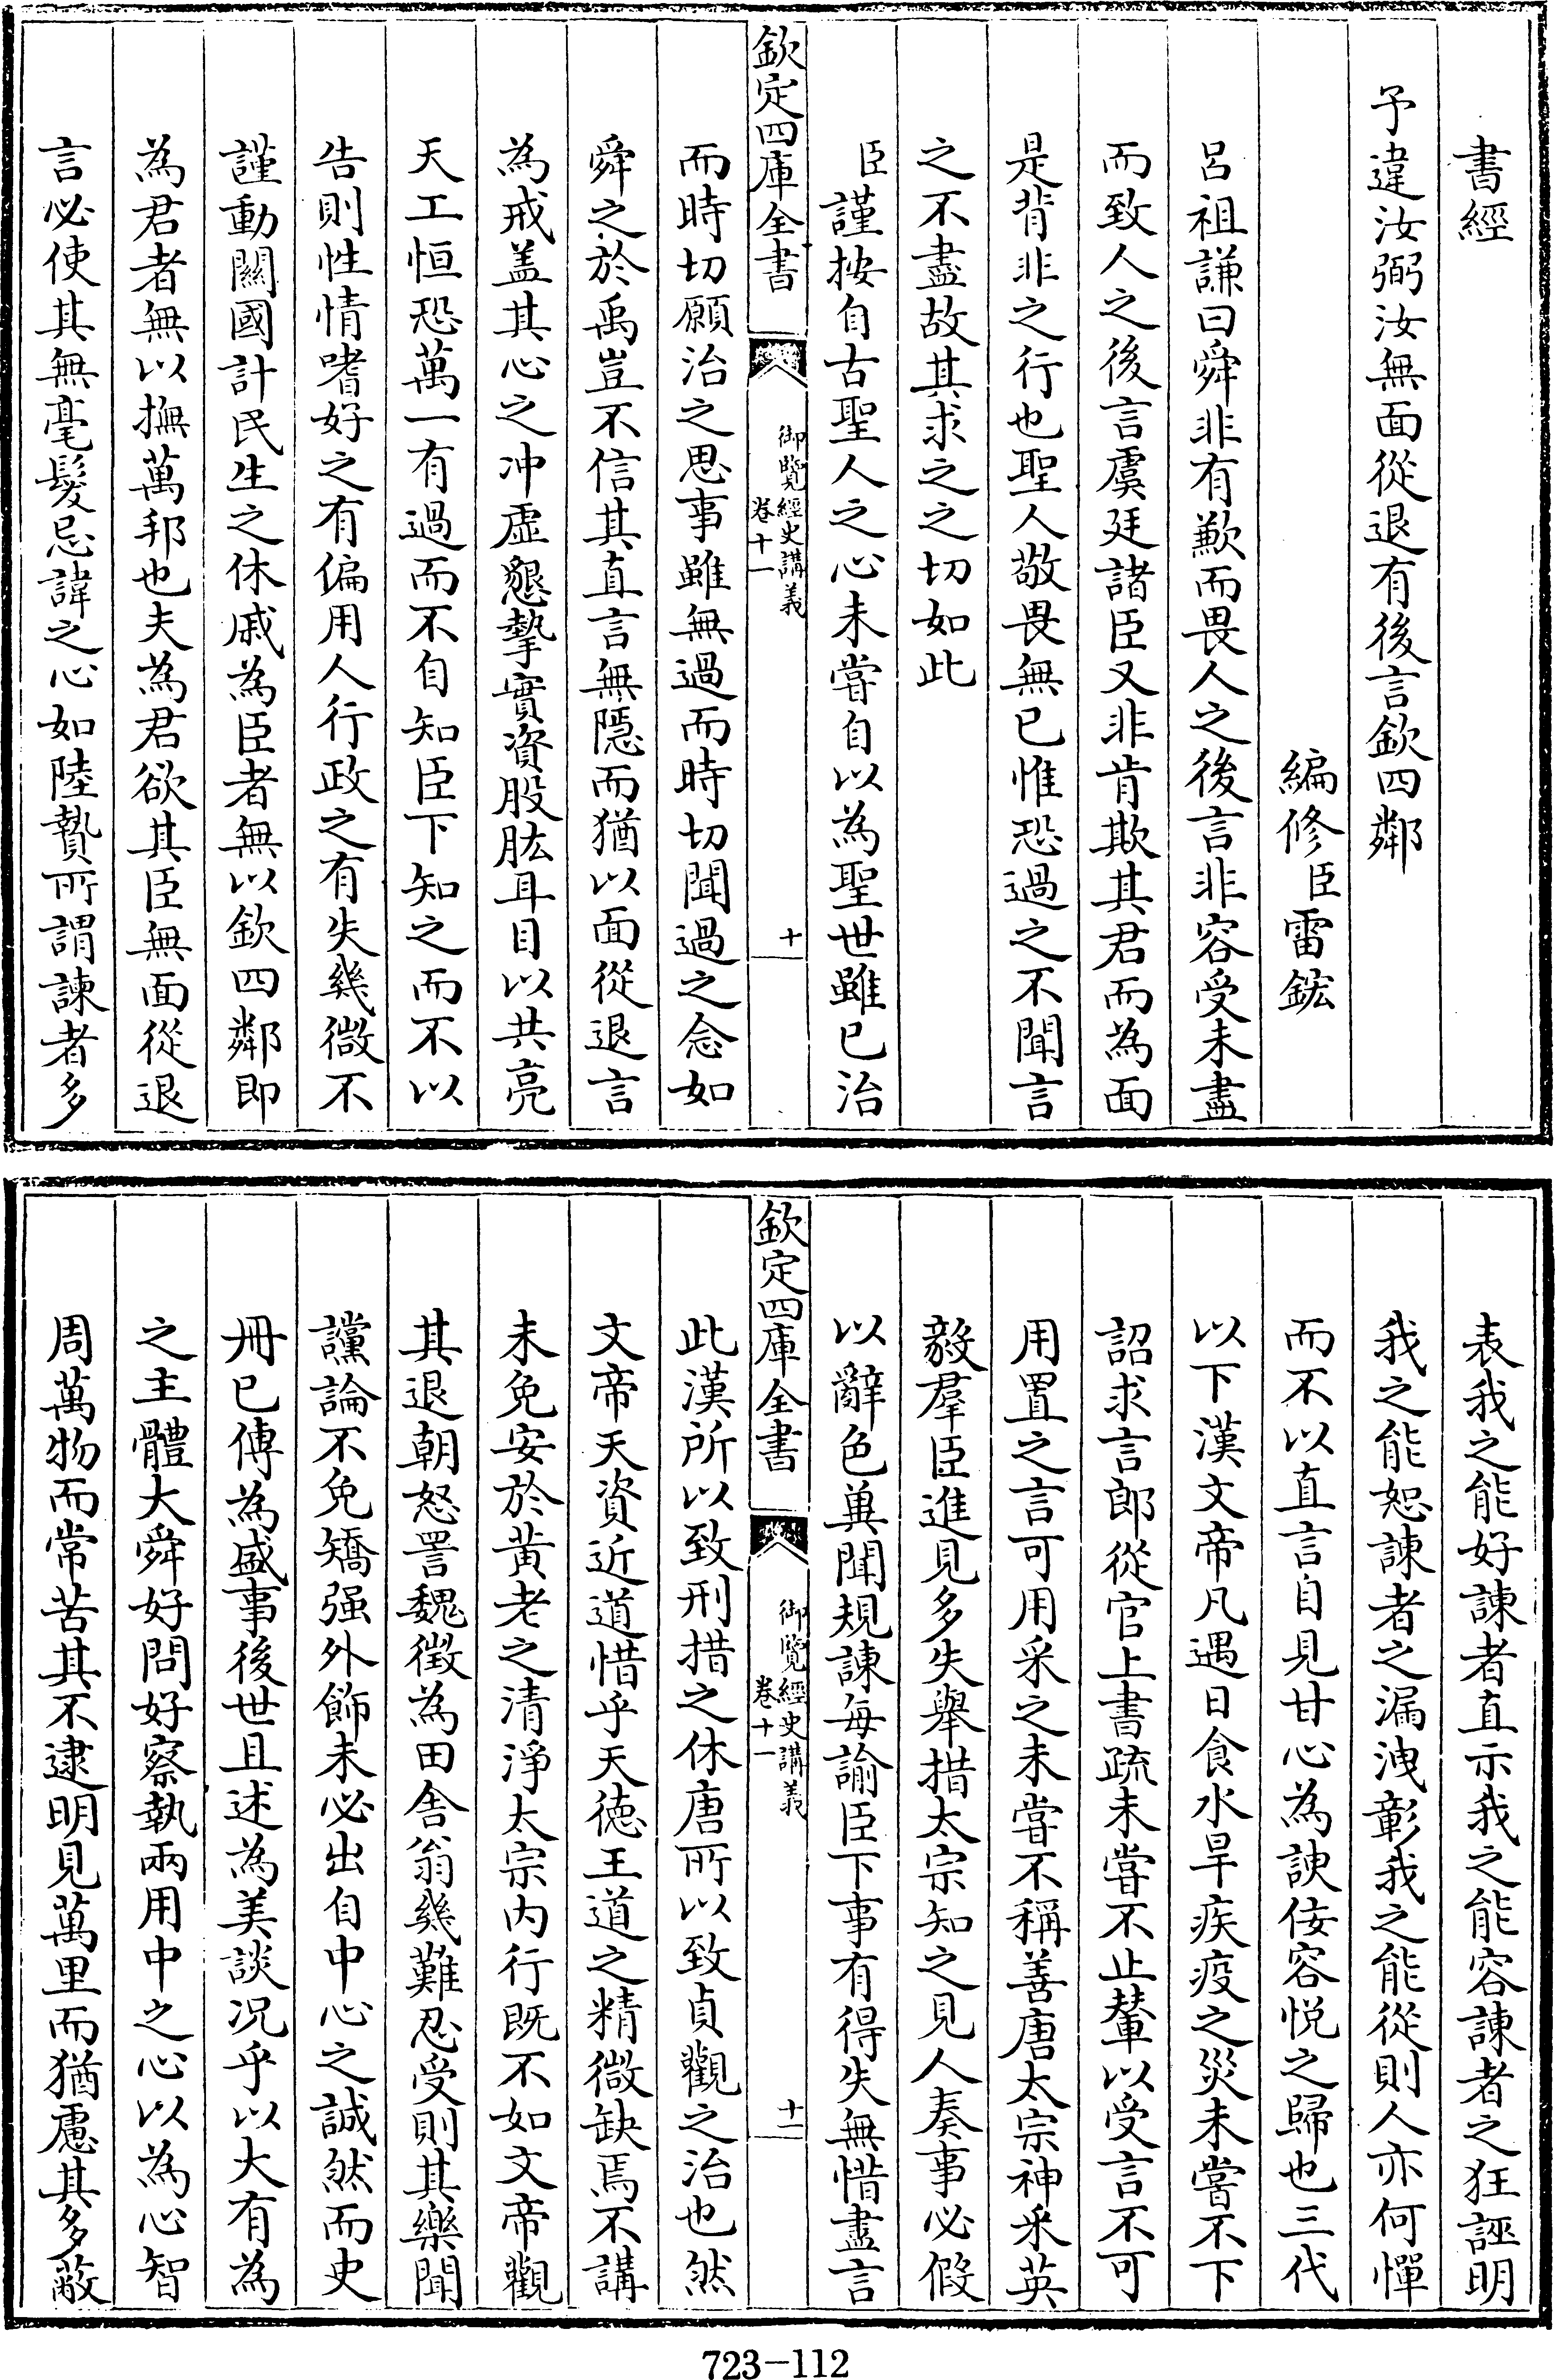 書經
予違汝弼汝無面從退有後言欽四鄰
編修臣雷鋐
呂祖謙曰舜非有歉而畏人之後言非容受未盡
而致人之後言虞廷諸臣又非肯欺其君而為面
是背非之行也聖人敬畏無已惟恐過之不聞言
之不盡故其求之之切如此
臣謹按自古聖人之心未嘗自以為聖世雖已治
欽定四庫全書
御覽經史講義
卷十一
十
而時切願治之思事雖無過而時切聞過之念如
舜之於禹豈不信其直言無隱而猶以面從退言
為戒盖其心之冲虛懇摯實資股肱耳目以共亮
天工恒恐萬一有過而不自知臣下知之而不以
告則性情嗜好之有偏用人行政之有失幾微不
謹動關國計民生之休戚為臣者無以欽四鄰即
為君者無以撫萬邦也夫為君欲其臣無面從退
言必使其無毫髮忌諱之心如陸贄所謂諫者多
表我之能好諫者直示我之能容諫者之狂誣明
我之能恕諫者之漏洩彰我之能從則人亦何憚
而不以直言自見甘心為諛佞容悅之歸也三代
以下漢文帝凡遇日食水旱疾疫之災未嘗不下
詔求言郎從官上書疏未嘗不止輦以受言不可
用置之言可用采之未嘗不稱善唐太宗神采英
毅羣臣進見多失舉措太宗知之見人奏事必假
以辭色兾聞規諫每諭臣下事有得失無惜盡言
欽定四庫全書
御覽經史講義
卷十一
十一
此漢所以致刑措之休唐所以致貞觀之治也然
文帝天資近道惜乎天德王道之精微缺焉不講
未免安於黃老之清淨太宗內行既不如文帝觀
其退朝怒詈魏徵為田舍翁幾難忍受則其樂聞
讜論不免矯强外飾未必出自中心之誠然而史
冊已傳為盛事後世且述為美談况乎以大有為
之主體大舜好問好察執兩用中之心以為心智
周萬物而常苦其不逮明見萬里而猶慮其多蔽
723-112